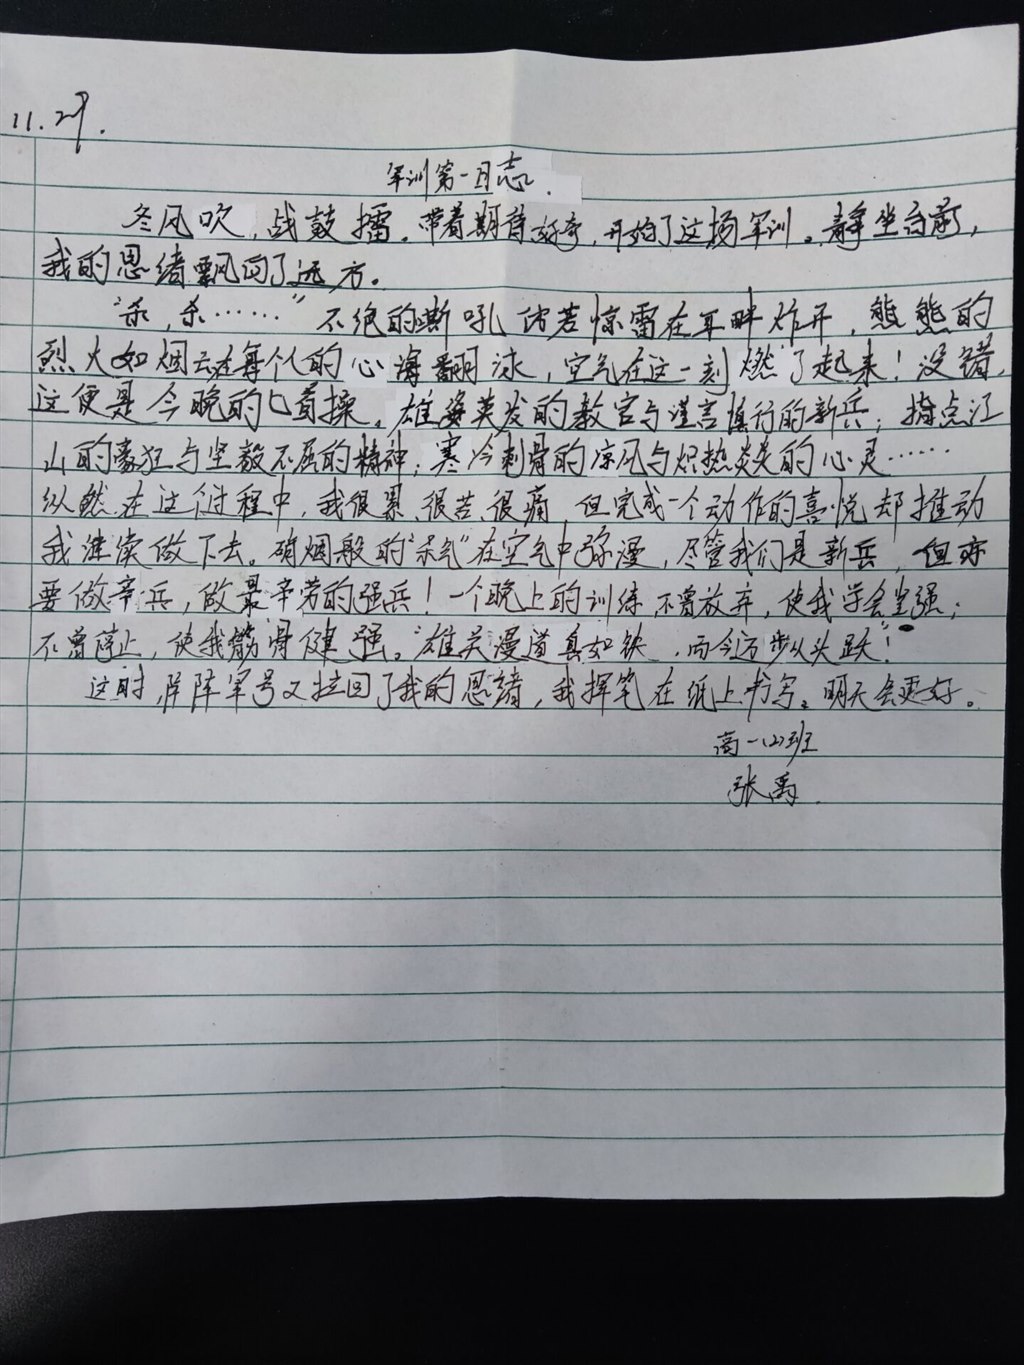 11.29.
军训第一日志.
冬风吹,战鼓擂。带着期待好奇,开始了这场军训。静坐台前,
我的思绪飘向了远方。
“杀,杀……”不绝的嘶吼仿若惊雷在耳畔炸开,熊熊的
烈火如烟云在每个人的心海翻沸,空气在这一刻燃了起来!没错,
这便是今晚的匕首操。雄姿英发的教官与谨言慎行的新兵;指点江
山的豪狂与坚毅不屈的精神;寒冷刺骨的凉风与炽热炎炎的心灵……
纵然在这个过程中,我很累、很苦、很痛,但完成一个动作的喜悦却推动
我继续做下去。硝烟般的“杀气”在空气中弥漫,尽管我们是新兵,但亦
要做辛兵,做最辛劳的强兵!一个晚上的训练,不曾放弃,使我学会坚强;
不曾停止,使我筋骨健强。“雄关漫道真如铁,而今迈步从头跃”!
这时,阵阵军号又拉回了我的思绪,我挥笔在纸上书写。明天会更好。
高一(2)班
张禹.